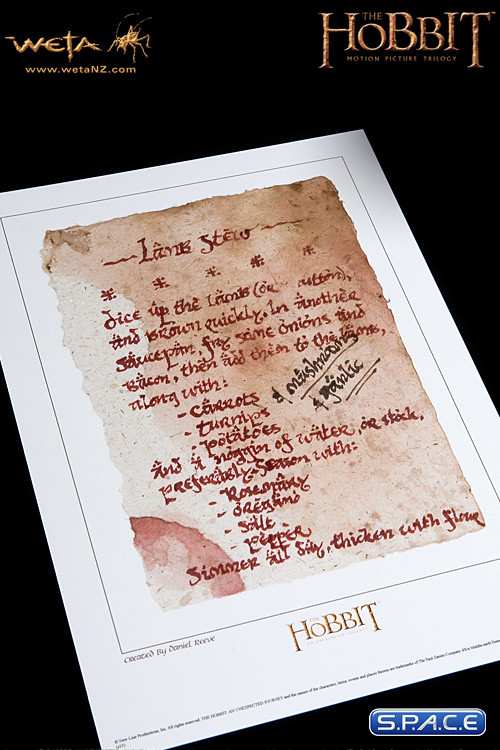 WETA
www.wetaNZ.com
THE
HOBBIT
MOTION PICTURE TRILOGY
Lamb Stew
Dice up the lamb (or mutton),
and brown quickly. In another
saucepan, fry some onions and
bacon, then add them to the
along with:
& mushrooms
& garlic
- Carrots
- Turnips
- Potatoes
and a noggin of water, or stock,
preferably. Season with:
- Rosemary
- oregano
- Salt
- Pepper
Simmer all day, thicken with flour
Created By Daniel Reeve
THE
HOBBIT
AN UNEXPECTED JOURNEY
© New Line Productions, Inc. All rights reserved. THE HOBBIT: AN UNEXPECTED JOURNEY and the names of the characters, items, events and places therein are trademarks of The Saul Zaentz Company d/b/a Middle-earth
S.P.A.C.E